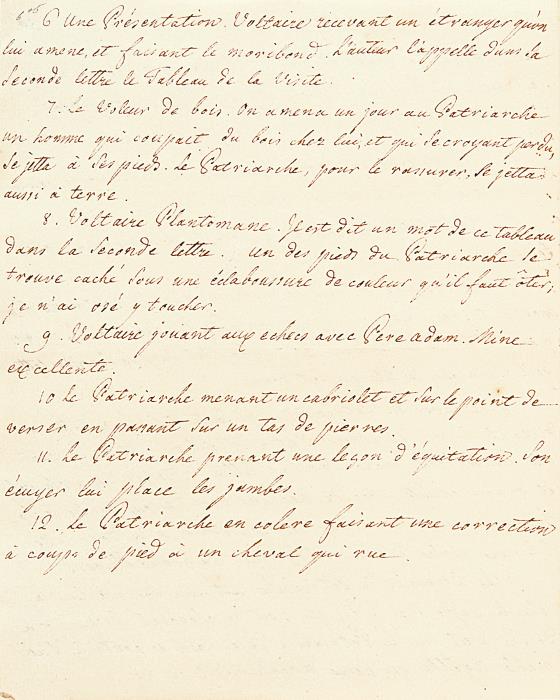 6 Une Présentation. Voltaire recevant un étranger qu'on
lui amene, et faisant le moribond. L'auteur l'appelle dans sa
seconde lettre le Tableau de la Visite.
7. Le Voleur de bois. On amena un jour au Patriarche
un homme qui coupait du bois chez lui, et qui se croyant perdu,
se jetta à ses pieds. Le Patriarche, pour le rassurer, se jetta
aussi à terre.
8. Voltaire Plantomane. Il est dit un mot de ce tableau
dans la seconde lettre. un des pieds du Patriarche se
trouve caché sous une éclaboussure de couleur qu'il faut ôter,
je n'ai osé y toucher.
9. Voltaire jouant aux echecs avec Pere adam. Mine
excellente.
10 Le Patriarche menant un cabriolet et sur le point de
verser en passant sur un tas de pierres.
11. Le Patriarche prenant une leçon d'équitation. Son
écuyer lui place les jambes.
12. Le Patriarche en colere faisant une correction
à coups de pied à un cheval qui rue.